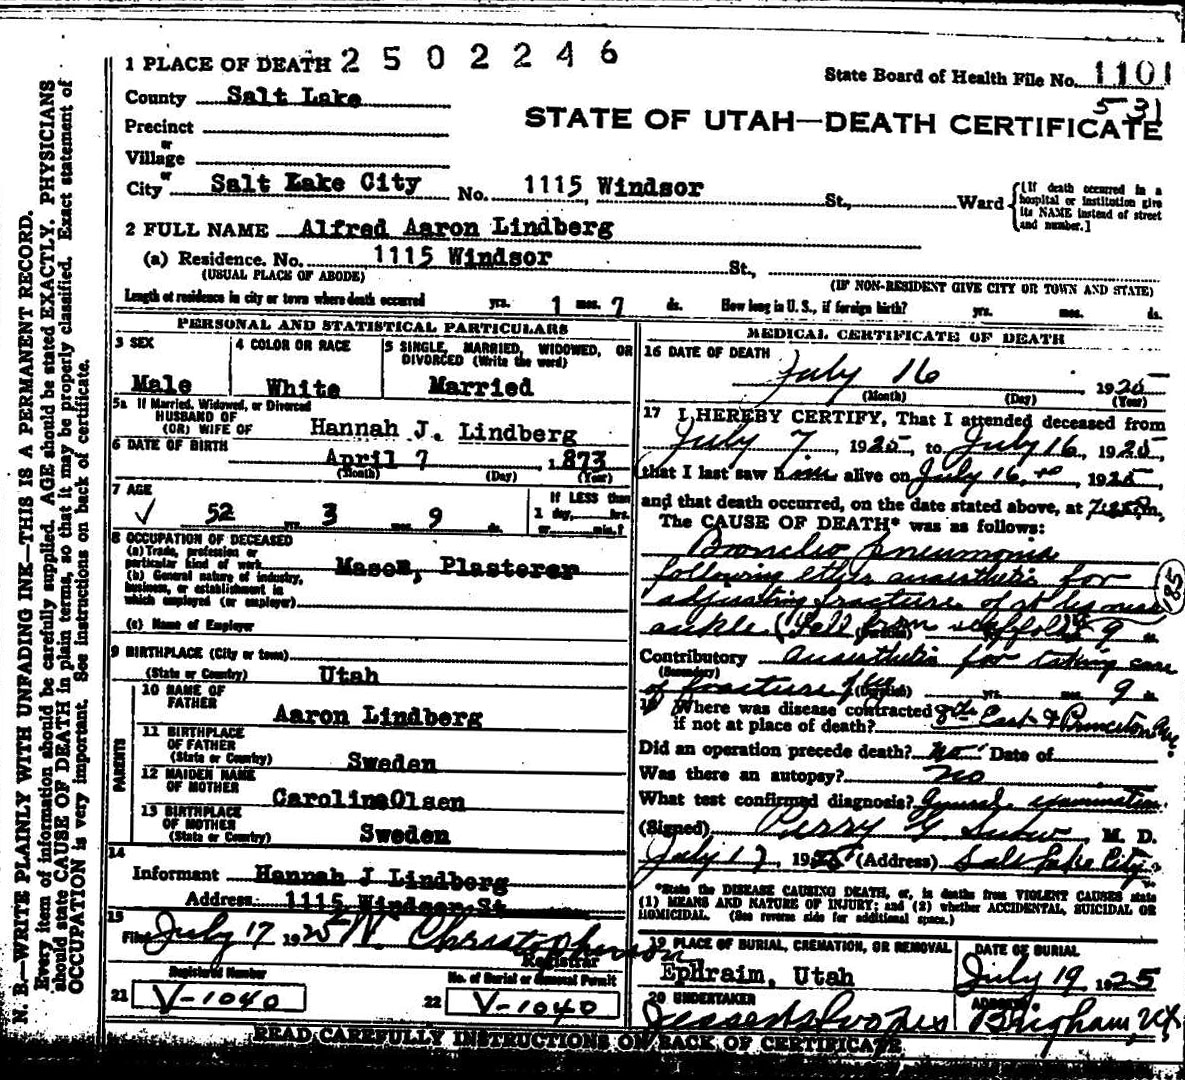 1 PLACE OF DEATH 2502246
State Board of Health File No. 1101
County Salt Lake
531
STATE OF UTAH—DEATH CERTIFICATE
Precinct
or
Village
or
City Salt Lake City No. 1115 Windsor St., Ward
[If death occurred in a hospital or institution give its NAME instead of street and number.]
2 FULL NAME Alfred Aaron Lindberg
(a) Residence. No. 1115 Windsor St.,
(USUAL PLACE OF ABODE) (IF NON-RESIDENT GIVE CITY OR TOWN AND STATE)
Length of residence in city or town where death occurred yrs. 1 mos. 7 ds. How long in U. S., if foreign birth? yrs. mos. ds.
PERSONAL AND STATISTICAL PARTICULARS
3 SEX
Male
4 COLOR OR RACE
White
5 SINGLE, MARRIED, WIDOWED, OR DIVORCED (Write the word)
Married
5a If Married, Widowed, or Divorced
HUSBAND OF
(OR) WIFE OF Hannah J. Lindberg
6 DATE OF BIRTH April 7, 1873
(Month) (Day) (Year)
7 AGE
52 yrs. 3 mos. 9 ds.
If LESS than
1 day, hrs.
or min.?
8 OCCUPATION OF DECEASED
(a) Trade, profession or
particular kind of work Mason, Plasterer
(b) General nature of industry,
business, or establishment in
which employed (or employer)
(c) Name of Employer
9 BIRTHPLACE (City or town)
(State or Country) Utah
PARENTS
10 NAME OF
FATHER
Aaron Lindberg
11 BIRTHPLACE
OF FATHER
(State or Country) Sweden
12 MAIDEN NAME
OF MOTHER
Caroline Olsen
13 BIRTHPLACE
OF MOTHER
(State or Country) Sweden
14
Informant Hannah J Lindberg
Address 1115 Windsor St
15
Filed July 17 1925 W. Christopherson
Registrar
Registered Number
21 V-1040
No. of Burial or Removal Permit
22 V-1040
MEDICAL CERTIFICATE OF DEATH
16 DATE OF DEATH
July 16 1925
(Month) (Day) (Year)
17 I HEREBY CERTIFY, That I attended deceased from
July 7, 1925, to July 16, 1925,
that I last saw him alive on July 16, 1925,
and that death occurred, on the date stated above, at m.
The CAUSE OF DEATH* was as follows:
Broncho pneumonia
following ether anaesthetic for
adjusting fracture of rt leg near
ankle (Fell from scaffold) 9 ds.
(Duration)
185
Contributory anaesthetic for taking care
(Secondary)
of fracture (Duration) yrs. mos. 9 ds.
18 Where was disease contracted
if not at place of death? 8th East & Princeton Ave.
Did an operation precede death? No Date of
Was there an autopsy? No
What test confirmed diagnosis? General examination
(Signed) Perry G Snow, M. D.
July 17, 1925 (Address) Salt Lake City
*State the DISEASE CAUSING DEATH, or, in deaths from VIOLENT CAUSES state
(1) MEANS AND NATURE OF INJURY; and (2) whether ACCIDENTAL, SUICIDAL OR
HOMICIDAL. (See reverse side for additional space.)
19 PLACE OF BURIAL, CREMATION, OR REMOVAL
Ephraim, Utah
DATE OF BURIAL
July 19 1925
20 UNDERTAKER
ADDRESS
Brigham
READ CAREFULLY INSTRUCTIONS ON BACK OF CERTIFICATE
N. B.—WRITE PLAINLY WITH UNFADING INK—THIS IS A PERMANENT RECORD.
Every item of information should be carefully supplied. AGE should be stated EXACTLY. PHYSICIANS
should state CAUSE OF DEATH in plain terms, so that it may be properly classified. Exact statement of
OCCUPATION is very important. See instructions on back of certificate.